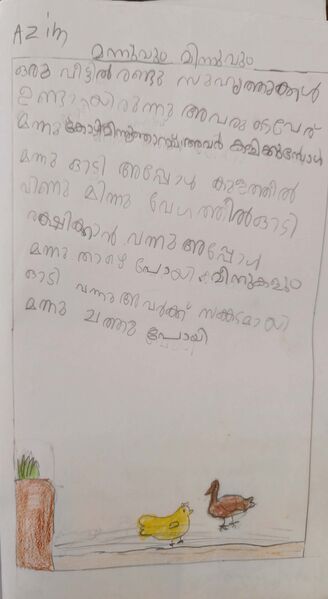 Azim
മന്നുവും മിന്നുവും
ഒരു വീട്ടിൽ രണ്ടു സുഹൃത്തുക്കൾ
ഉണ്ടായിരുന്നു അവരുടെ പേര്
മന്നു കോഴിമിന്നുതാറാഅവർ കളിക്കുമ്പോൾ
മന്നു ഓടി അപ്പോൾ കുളത്തിൽ
വീണു മിന്നു വേഗത്തിൽഓടി
രക്ഷിക്കാൻ വന്നു അപ്പോൾ
മന്നു താഴെ പോയി മീനുകളും
ഓടി വന്നു അവർക്ക് സങ്കടമായി
മന്നു ചത്തു പോയി